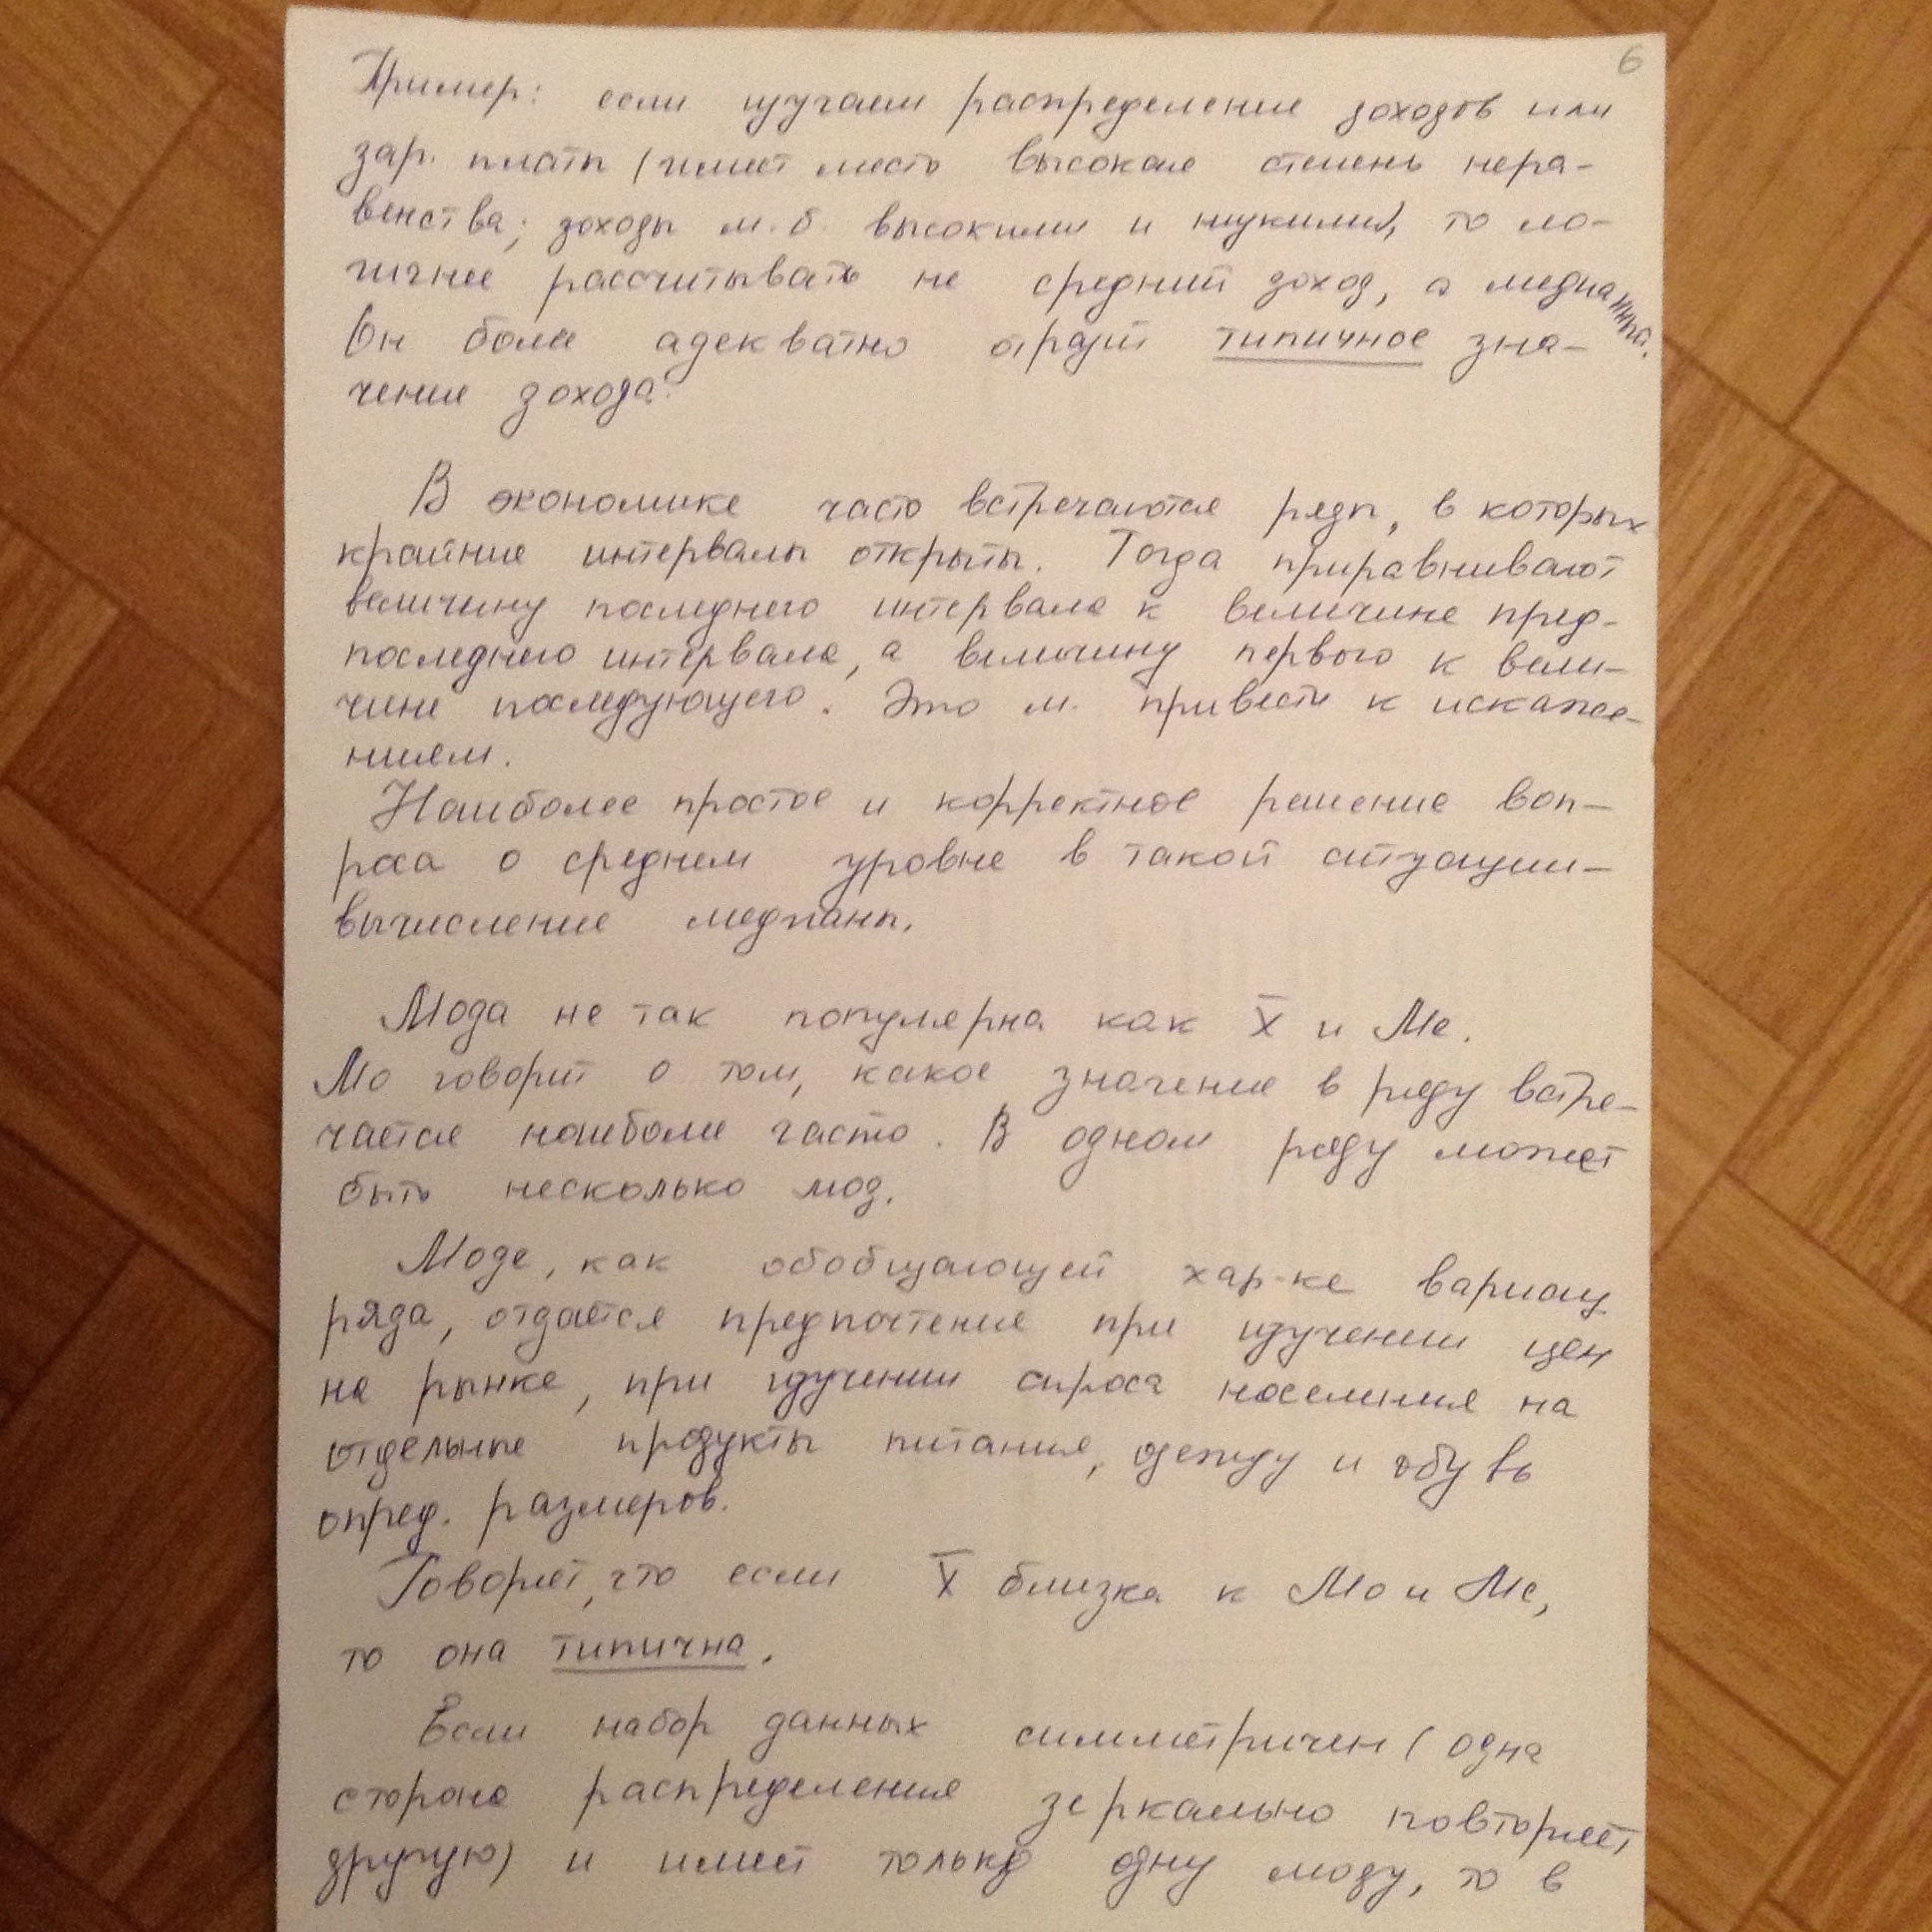 6
Пример: если изучаем распределение доходов или
зар. платы (имеет место высокая степень нера-
венства; доходы м.б. высокими и низкими), то ло-
гичнее рассчитывать не средний доход, а медианный.
Он более адекватно отразит типичное зна-
чение дохода.
В экономике часто встречаются ряды, в которых
крайние интервалы открыты. Тогда приравнивают
величину последнего интервала к величине пред-
последнего интервала, а величину первого к вели-
чине последующего. Это м. привести к искаже-
ниям.
Наиболее простое и корректное решение воп-
роса о среднем уровне в такой ситуации -
вычисление медианы.
Мода не так популярна как X̅ и Ме.
Мо говорит о том, какое значение в ряду встре-
чается наиболее часто. В одном ряду может
быть несколько мод.
Моде, как обобщающей хар-ке вариац.
ряда, отдается предпочтение при изучении цен
на рынке, при изучении спроса населения на
отдельные продукты питания, одежду и обувь
опред. размеров.
Говорят, что если X̅ близка к Мо и Ме,
то она типична.
Если набор данных симметричен (одна
сторона распределения зеркально повторяет
другую) и имеет только одну моду, то в